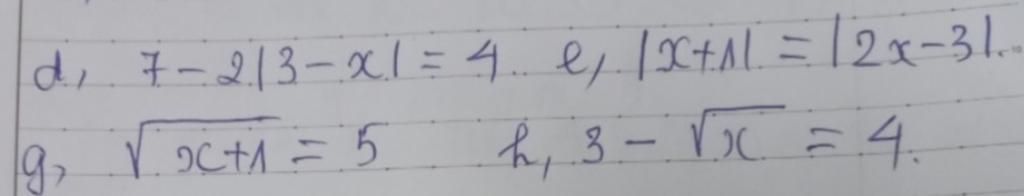 d, 7 - 2|3 - x| = 4 e, |x+1| = |2x-3|.
g, √(x+1) = 5 h, 3 - √x = 4.